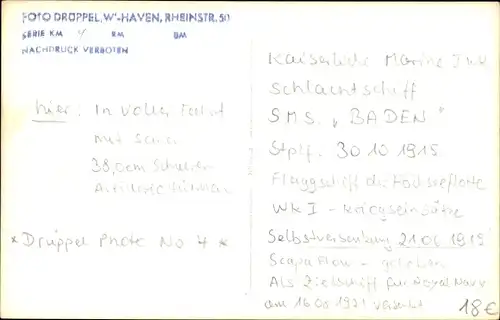 FOTO DRÜPPEL, W'-HAVEN, RHEINSTR. 50
SERIE KM 4 RM BM
NACHDRUCK VERBOTEN
hier: In voller Fahrt
mit seinen
38,0cm Schweren
Artillerie
* Drüppel Photo No 4 *
Kaiserliche Marine
Schlachtschiff
SMS. „BADEN"
Stplf. 30 10 1915
Flaggschiff der Hochseeflotte
WK I - Kriegseinsätze
Selbstversenkung 21 06 1919
Scapa Flow - gehoben
Als Zielschiff für Royal Navy
am 16 08 1921 versenkt
18€